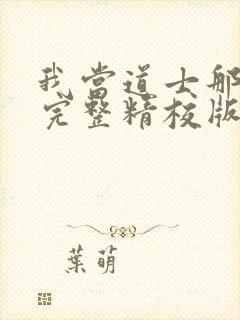 我當道士那
完整精校版
葉萌